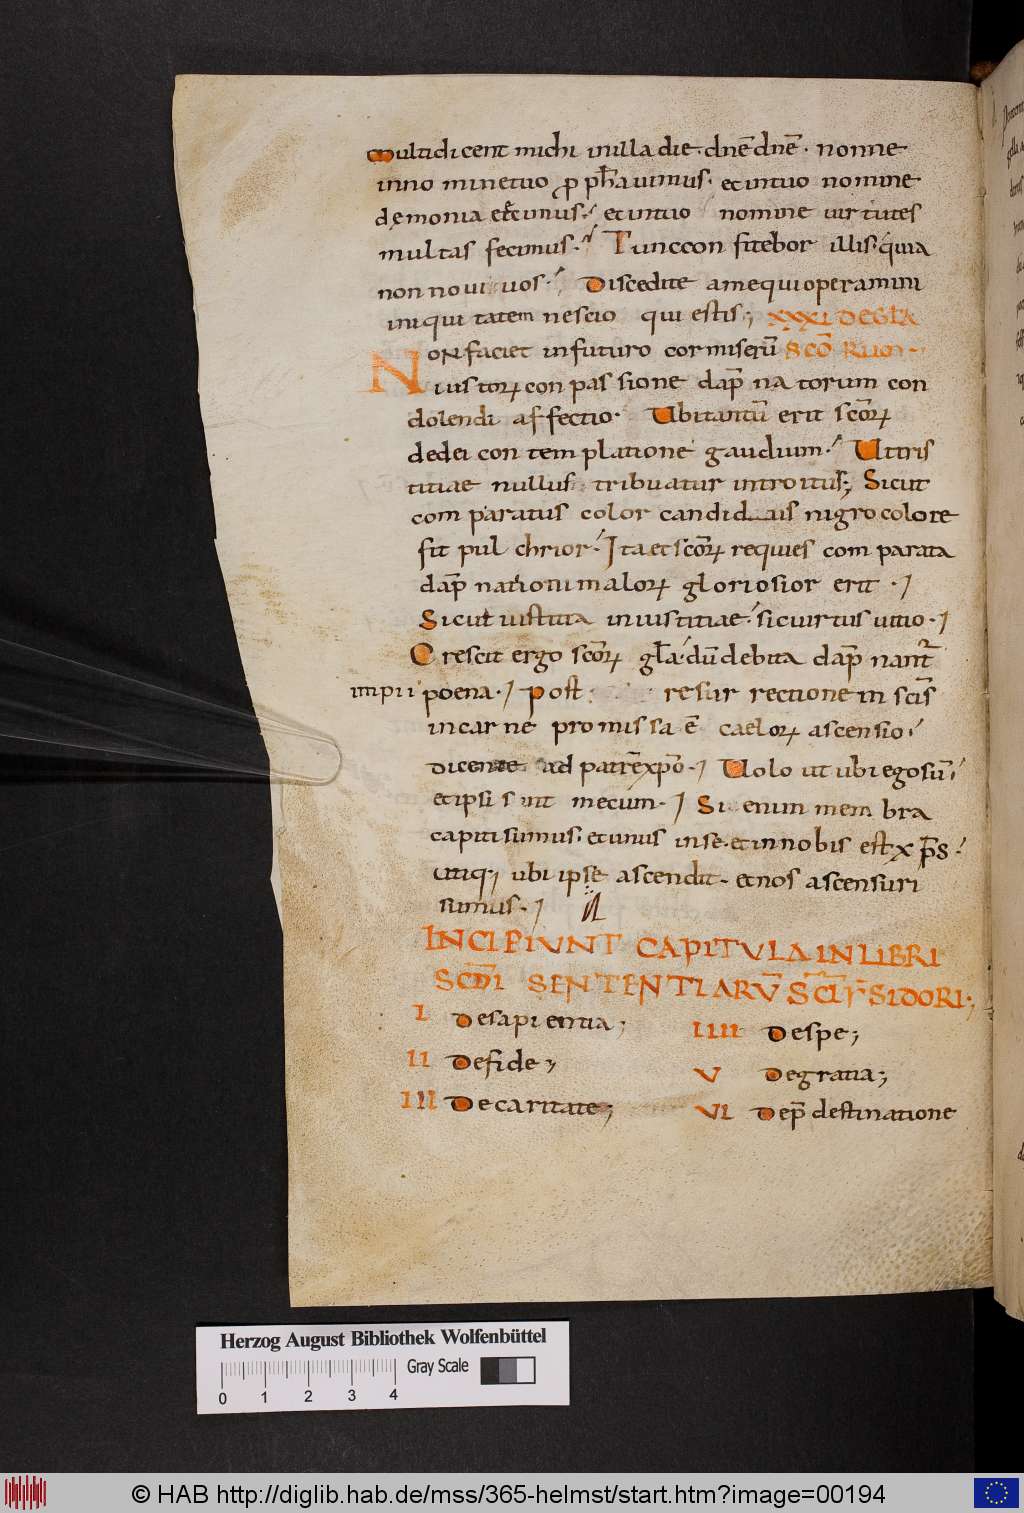 Multi dicent michi in illa die. dnē dnē. nonne
in nomine tuo ꝓphauimus. et in tuo nomine
dęmonia et in tuo nomine uirtutes
multas fecimus. Tunc confitebor illis. quia
non noui uos. Discedite a me qui operamini
iniquitatem nescio qui estis; XXXI DE GLA
Non faciet in futuro cor miserū SCORUM
iustoꝝ conpassione dāpnatorum con
dolendi affectio. Ubi tantū erit scōꝝ
de dei contemplatione gaudium. Ut tris
titiae nullus tribuatur introitus; Sicut
comparatus color candidus nigro colore
fit pulchrior. Ita et scōꝝ requies comparata
dāpnationi maloꝝ gloriosior erit.
Sicut iustitia iniustitiae. sic uirtus uitio.
Crescit ergo scōꝝ gła. dū debita dāpnant
impii poena. Post resurrectionem scīs
in carne promissa ē caeloꝝ ascensio
dicente ad patrē xpō. Uolo ut ubi ego sū
et ipsi sint mecum. Si enim membra
capiti sumus. et unus in se. et in nobis est xp̄s.
utiq; ubi ipse ascendit. et nos ascensuri
sumus.
INCIPIUNT CAPITULA IN LIBRI
SCDI SENTENTIARŪ SCI ISIDORI;
I De sapientia;
II De fide;
III De caritate;
IIII De spe;
V De gratia;
VI De p̄destinatione
Herzog August Bibliothek Wolfenbüttel
Gray Scale
0 1 2 3 4
© HAB http://diglib.hab.de/mss/365-helmst/start.htm?image=00194